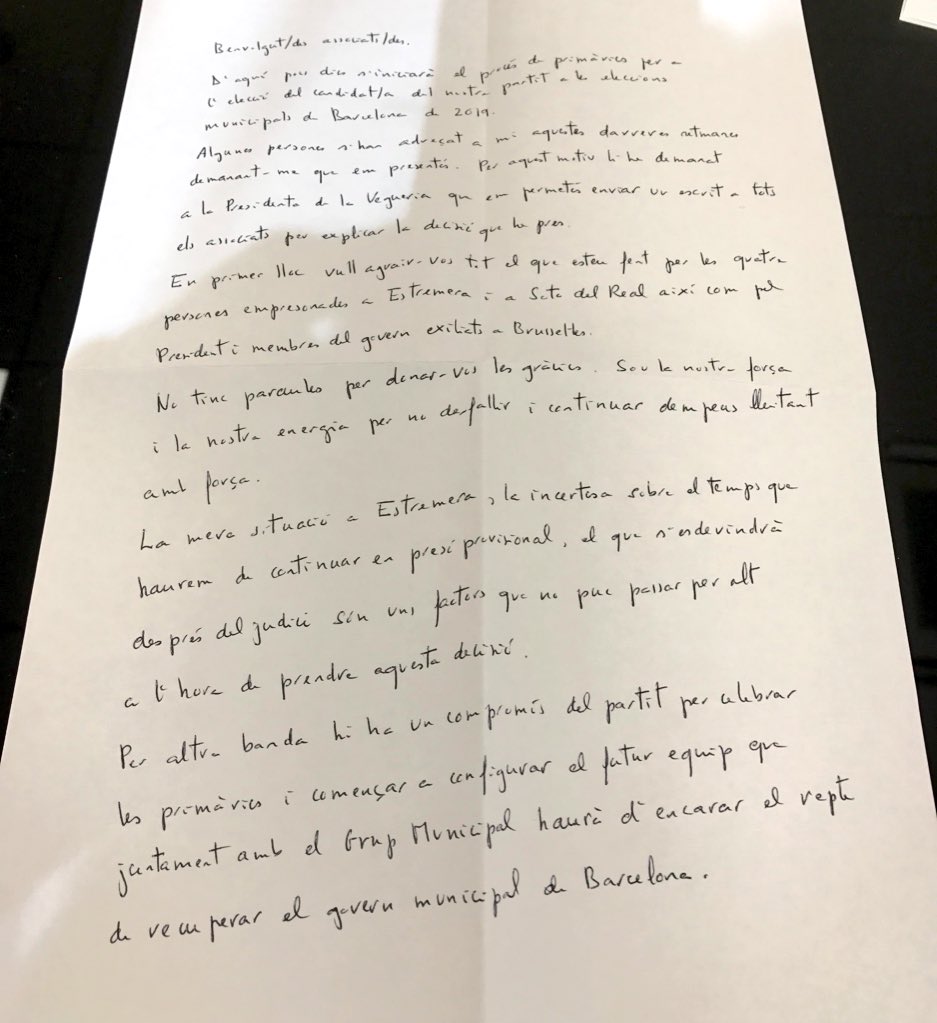 Benvolgut/des associats/des.
D'aquí pocs dies s'iniciarà el procés de primàries per a
l'elecció del candidat/a del nostre partit a les eleccions
municipals de Barcelona de 2019.
Algunes persones s'han adreçat a mi aquestes darreres setmanes
demanant-me que em presentés. Per aquest motiu li he demanat
a la Presidenta de la Vegueria que em permetés enviar un escrit a tots
els associats per explicar la decisió que he pres.
En primer lloc vull agrair-vos tot el que esteu fent per les quatre
persones empresonades a Estremera i a Soto del Real així com pel
President i membres del govern exiliats a Brussel·les.
No tinc paraules per donar-vos les gràcies. Sou la nostra força
i la nostra energia per no defallir i continuar dempeus lluitant
amb força.
La meva situació a Estremera, la incertesa sobre el temps que
haurem de continuar en presó provisional, el que s'esdevindrà
després del judici són uns factors que no puc passar per alt
a l'hora de prendre aquesta decisió.
Per altra banda hi ha un compromís del partit per celebrar
les primàries i començar a configurar el futur equip que
juntament amb el Grup Municipal haurà d'encarar el repte
de recuperar el govern municipal de Barcelona.